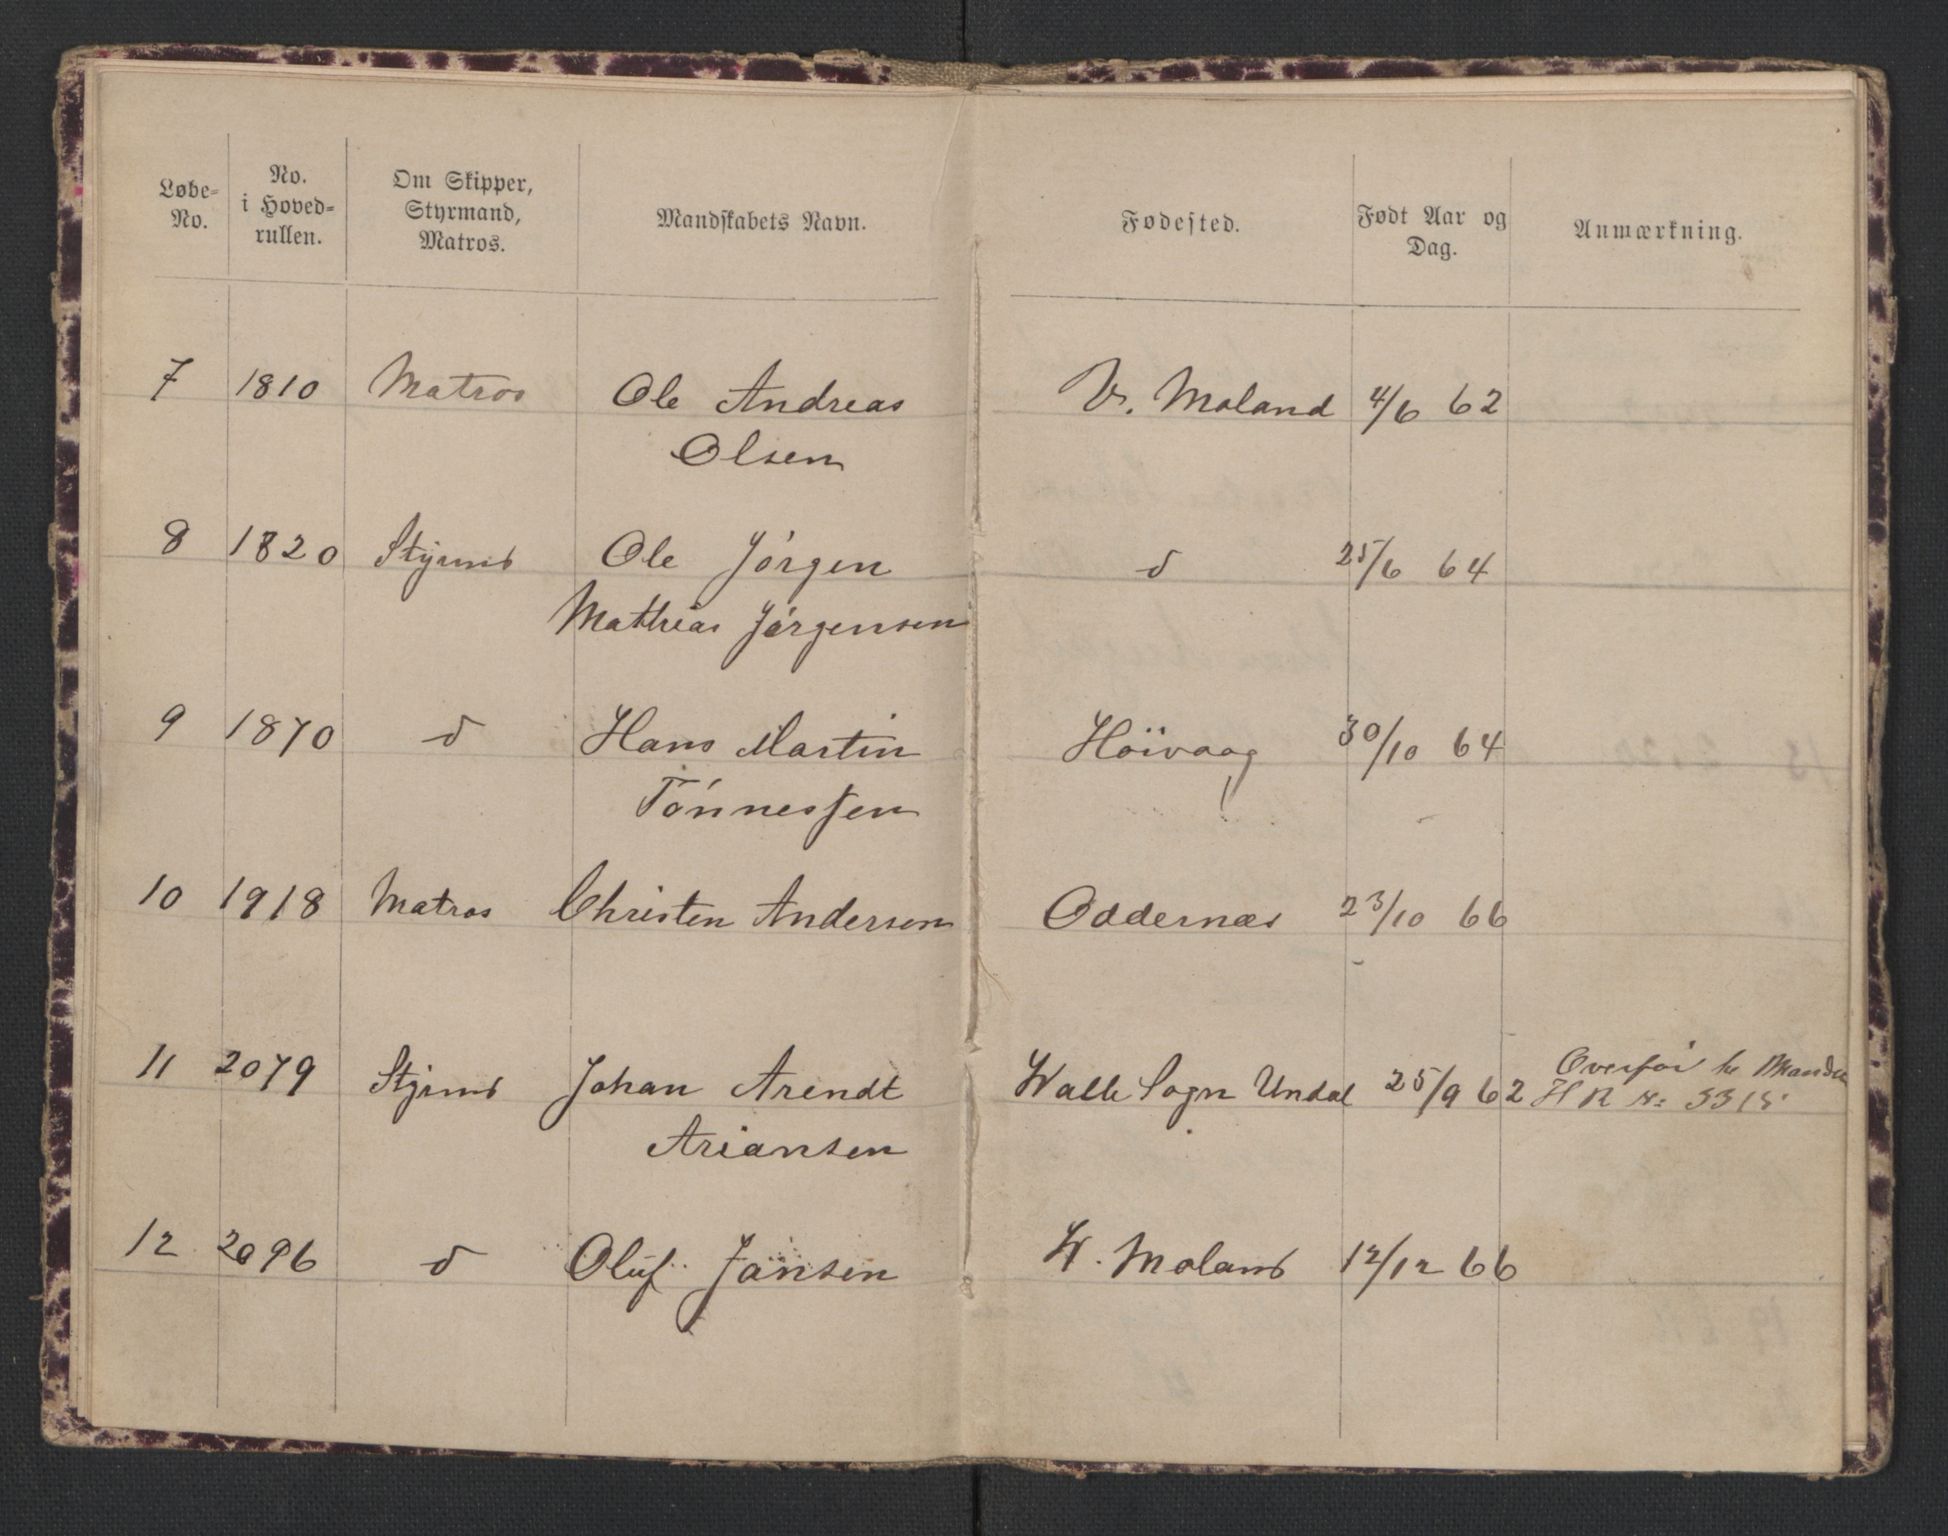 Løbe-No. | No. i Hoved-rullen. | Om Skipper, Styrmand, Matros. | Mandskabets Navn. | Fødested. | Født Aar og Dag. | Anmærkning.
7 1810 Matros Ole Andreas V. Moland 4/6 62
Olsen
8 1820 Styrmd Ole Jörgen d 25/6 64
Mathias Jörgensen
9 1870 d Hans Martin Höivaag 30/10 64
Tönnessen
10 1918 Matros Christen Andersen Oddernæs 23/10 66
Overför
11 2079 Styrmd Johan Arendt Walle Sogn Undal 25/9 62 H R No: 3315
Ariansen
12 2096 d Oluf Jansen W. Moland 12/12 66